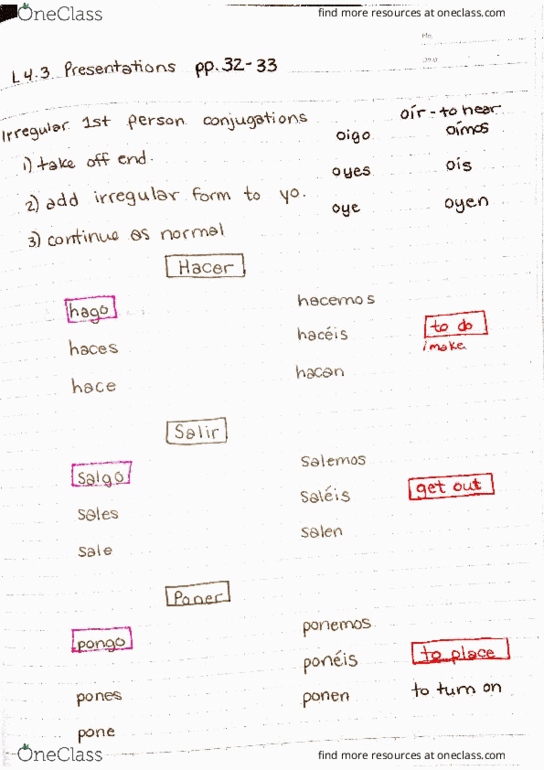 OneClass
find more resources at oneclass.com
L4.3 Presentations pp.32-33
Irregular 1st person conjugations
oír - to hear
oigo oímos
1) take off end.
oyes oís
2) add irregular form to yo.
oye oyen
3) continue as normal
Hacer
hago hacemos
haces hacéis to do
/make
hace hacen
Salir
salgo salemos
sales saléis get out
sale salen
Poner
pongo ponemos
ponéis to place
pones ponen to turn on
pone
OneClass
find more resources at oneclass.com